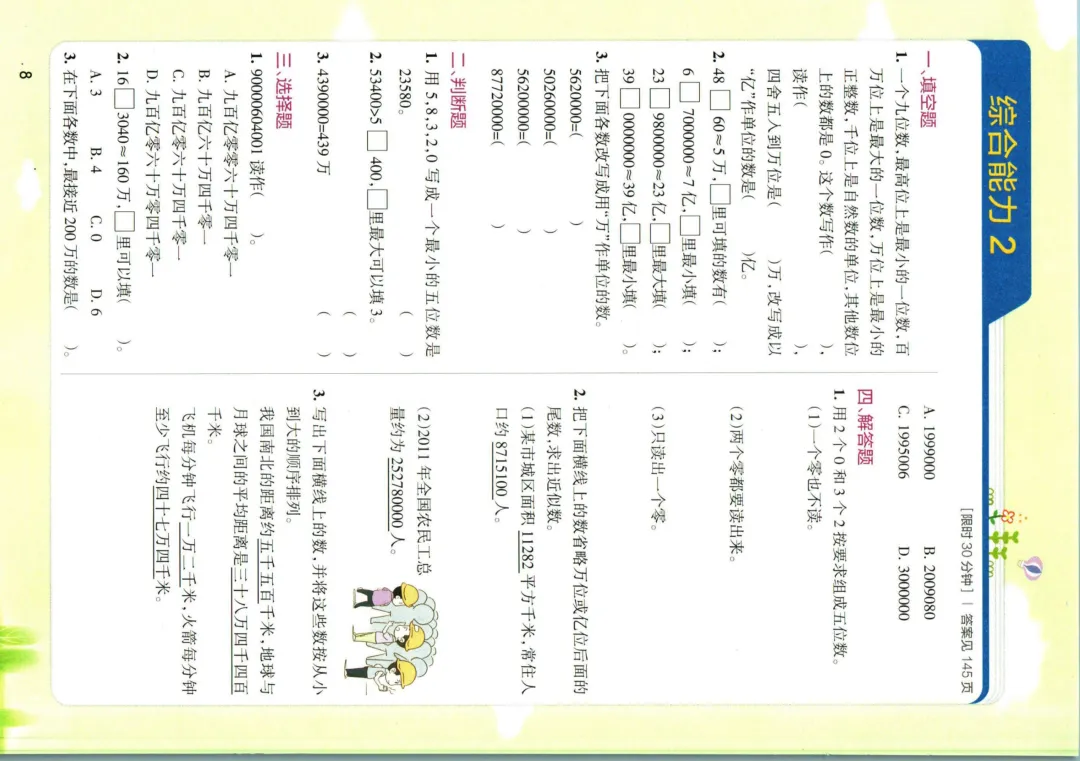 综合能力 2
[限时 30 分钟] | 答案见 145 页
一、填空题
1. 一个九位数，最高位上是最小的一位数，百
万位上是最大的一位数，万位上是最小的
正整数，千位上是自然数的单位，其他数位
上的数都是 0。这个数写作(　　)，
读作(　　)，
四舍五入到万位是(　　)万，改写成以
“亿”作单位的数是(　　)亿。
2. 48□60≈5 万，□里可填的数有(　　)；
6□7000000≈7 亿，□里最小填(　　)；
23□9800000≈23 亿，□里最大填(　　)；
39□0000000≈39 亿，□里最小填(　　)。
3. 把下面各数改写成用“万”作单位的数。
5620000=(　　)
50260000=(　　)
56200000=(　　)
87720000=(　　)
二、判断题
1. 用 5、8、3、2、0 写成一个最小的五位数是
23580。(　　)
2. 53400>5□400，□里最大可以填 3。
(　　)
3. 4390000=439 万(　　)
三、选择题
1. 90000604001 读作(　　)。
A. 九百亿零零六十万四千零一
B. 九百亿六十万四千零一
C. 九百亿零六十万四千零一
D. 九百亿零六十万零四千零一
2. 16□3040≈160 万，□里可以填(　　)。
A. 3　B. 4　C. 0　D. 6
3. 在下面各数中，最接近 200 万的数是(　　)。
A. 1999000　B. 2009080
C. 1995006　D. 3000000
四、解答题
1. 用 2 个 0 和 3 个 2 按要求组成五位数。
(1)一个零也不读。
(2)两个零都要读出来。
(3)只读出一个零。
2. 把下面横线上的数省略万位或亿位后面的
尾数，求出近似数。
(1)某市城区面积 11282 平方千米，常住人
口约 8715100 人。
(2)2011 年全国农民工总
量约为 252780000 人。
3. 写出下面横线上的数，并将这些数按从小
到大的顺序排列。
我国南北的距离约五千五百千米，地球与
月球之间的平均距离是三十八万四千四百
千米。
飞机每分钟飞行一万二千米，火箭每分钟
至少飞行约四十七万四千米。
8